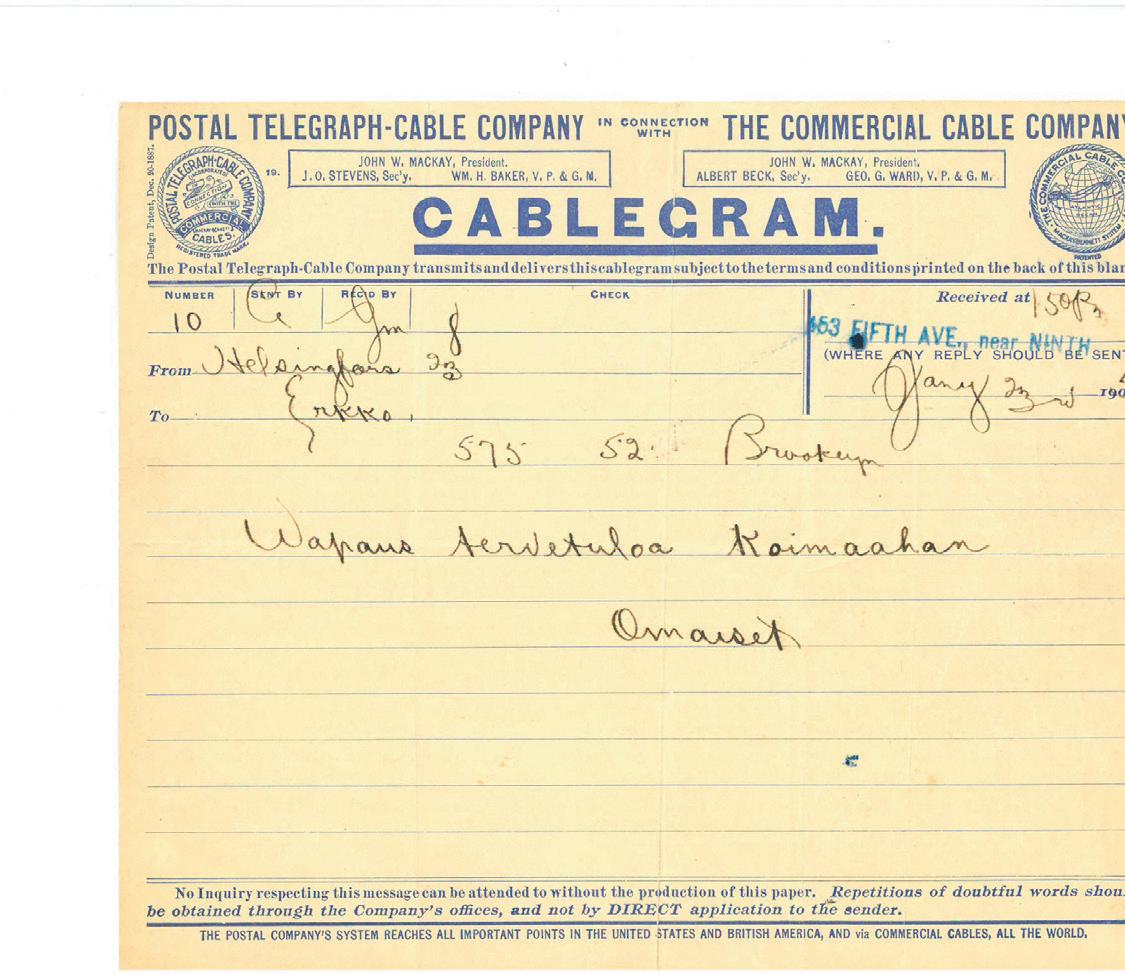 POSTAL TELEGRAPH-CABLE COMPANY IN CONNECTION WITH THE COMMERCIAL CABLE COMPANY
Design Patent, Dec. 20-1887.
POSTAL TELEGRAPH-CABLE COMPANY
INCORPORATED
CONNECTION
WITH THE
COMMERCIAL
MACKAY-BENNETT
CABLES.
REGISTERED TRADE MARK.
19.
JOHN W. MACKAY, President.
J.O. STEVENS, Sec'y. WM. H. BAKER, V. P. & G. M.
JOHN W. MACKAY, President.
ALBERT BECK, Sec'y. GEO. G. WARD, V. P. & G. M.
THE COMMERCIAL CABLE CO
MACKAY-BENNETT SYSTEM
PATENTED
CABLEGRAM.
The Postal Telegraph-Cable Company transmits and delivers this cablegram subject to the terms and conditions printed on the back of this blan
NUMBER SENT BY REC'D BY CHECK
10 Jm 8
Received at 150P
453 FIFTH AVE., near NINTH
(WHERE ANY REPLY SHOULD BE SENT
From Helsingfors 23
Jany 23rd 190
To Erkko,
575 52 Brooklyn
Wapaus tervetuloa Koimaahan
Omaiset
No Inquiry respecting this message can be attended to without the production of this paper. Repetitions of doubtful words shou
be obtained through the Company's offices, and not by DIRECT application to the sender.
THE POSTAL COMPANY'S SYSTEM REACHES ALL IMPORTANT POINTS IN THE UNITED STATES AND BRITISH AMERICA, AND via COMMERCIAL CABLES, ALL THE WORLD.